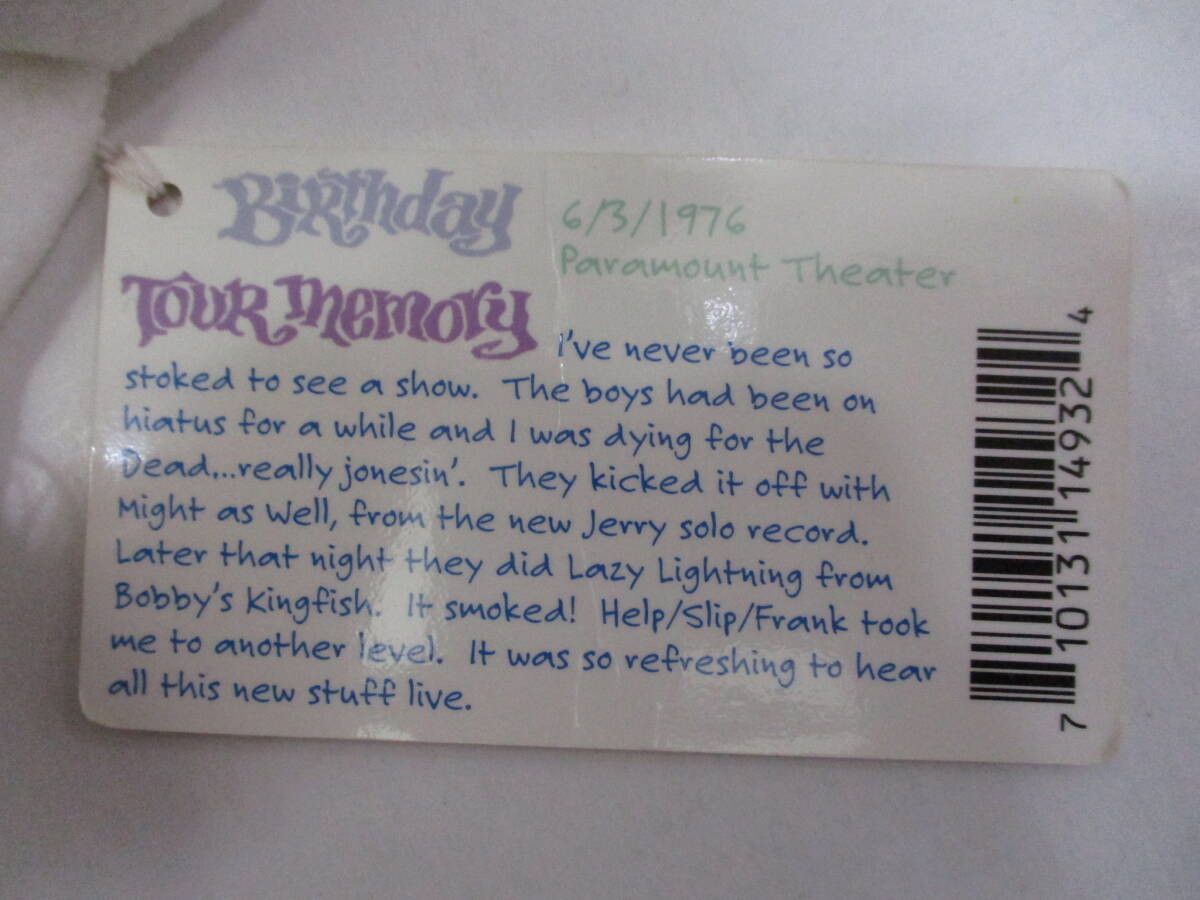 Birthday
6/3/1976
Paramount Theater
Tour Memory
I've never been so
stoked to see a show. The boys had been on
hiatus for a while and I was dying for the
Dead...really jonesin'. They kicked it off with
Might as Well, from the new Jerry solo record.
Later that night they did Lazy Lightning from
Bobby's Kingfish. It smoked! Help/Slip/Frank took
me to another level. It was so refreshing to hear
all this new stuff live.
7 10131 14932 4